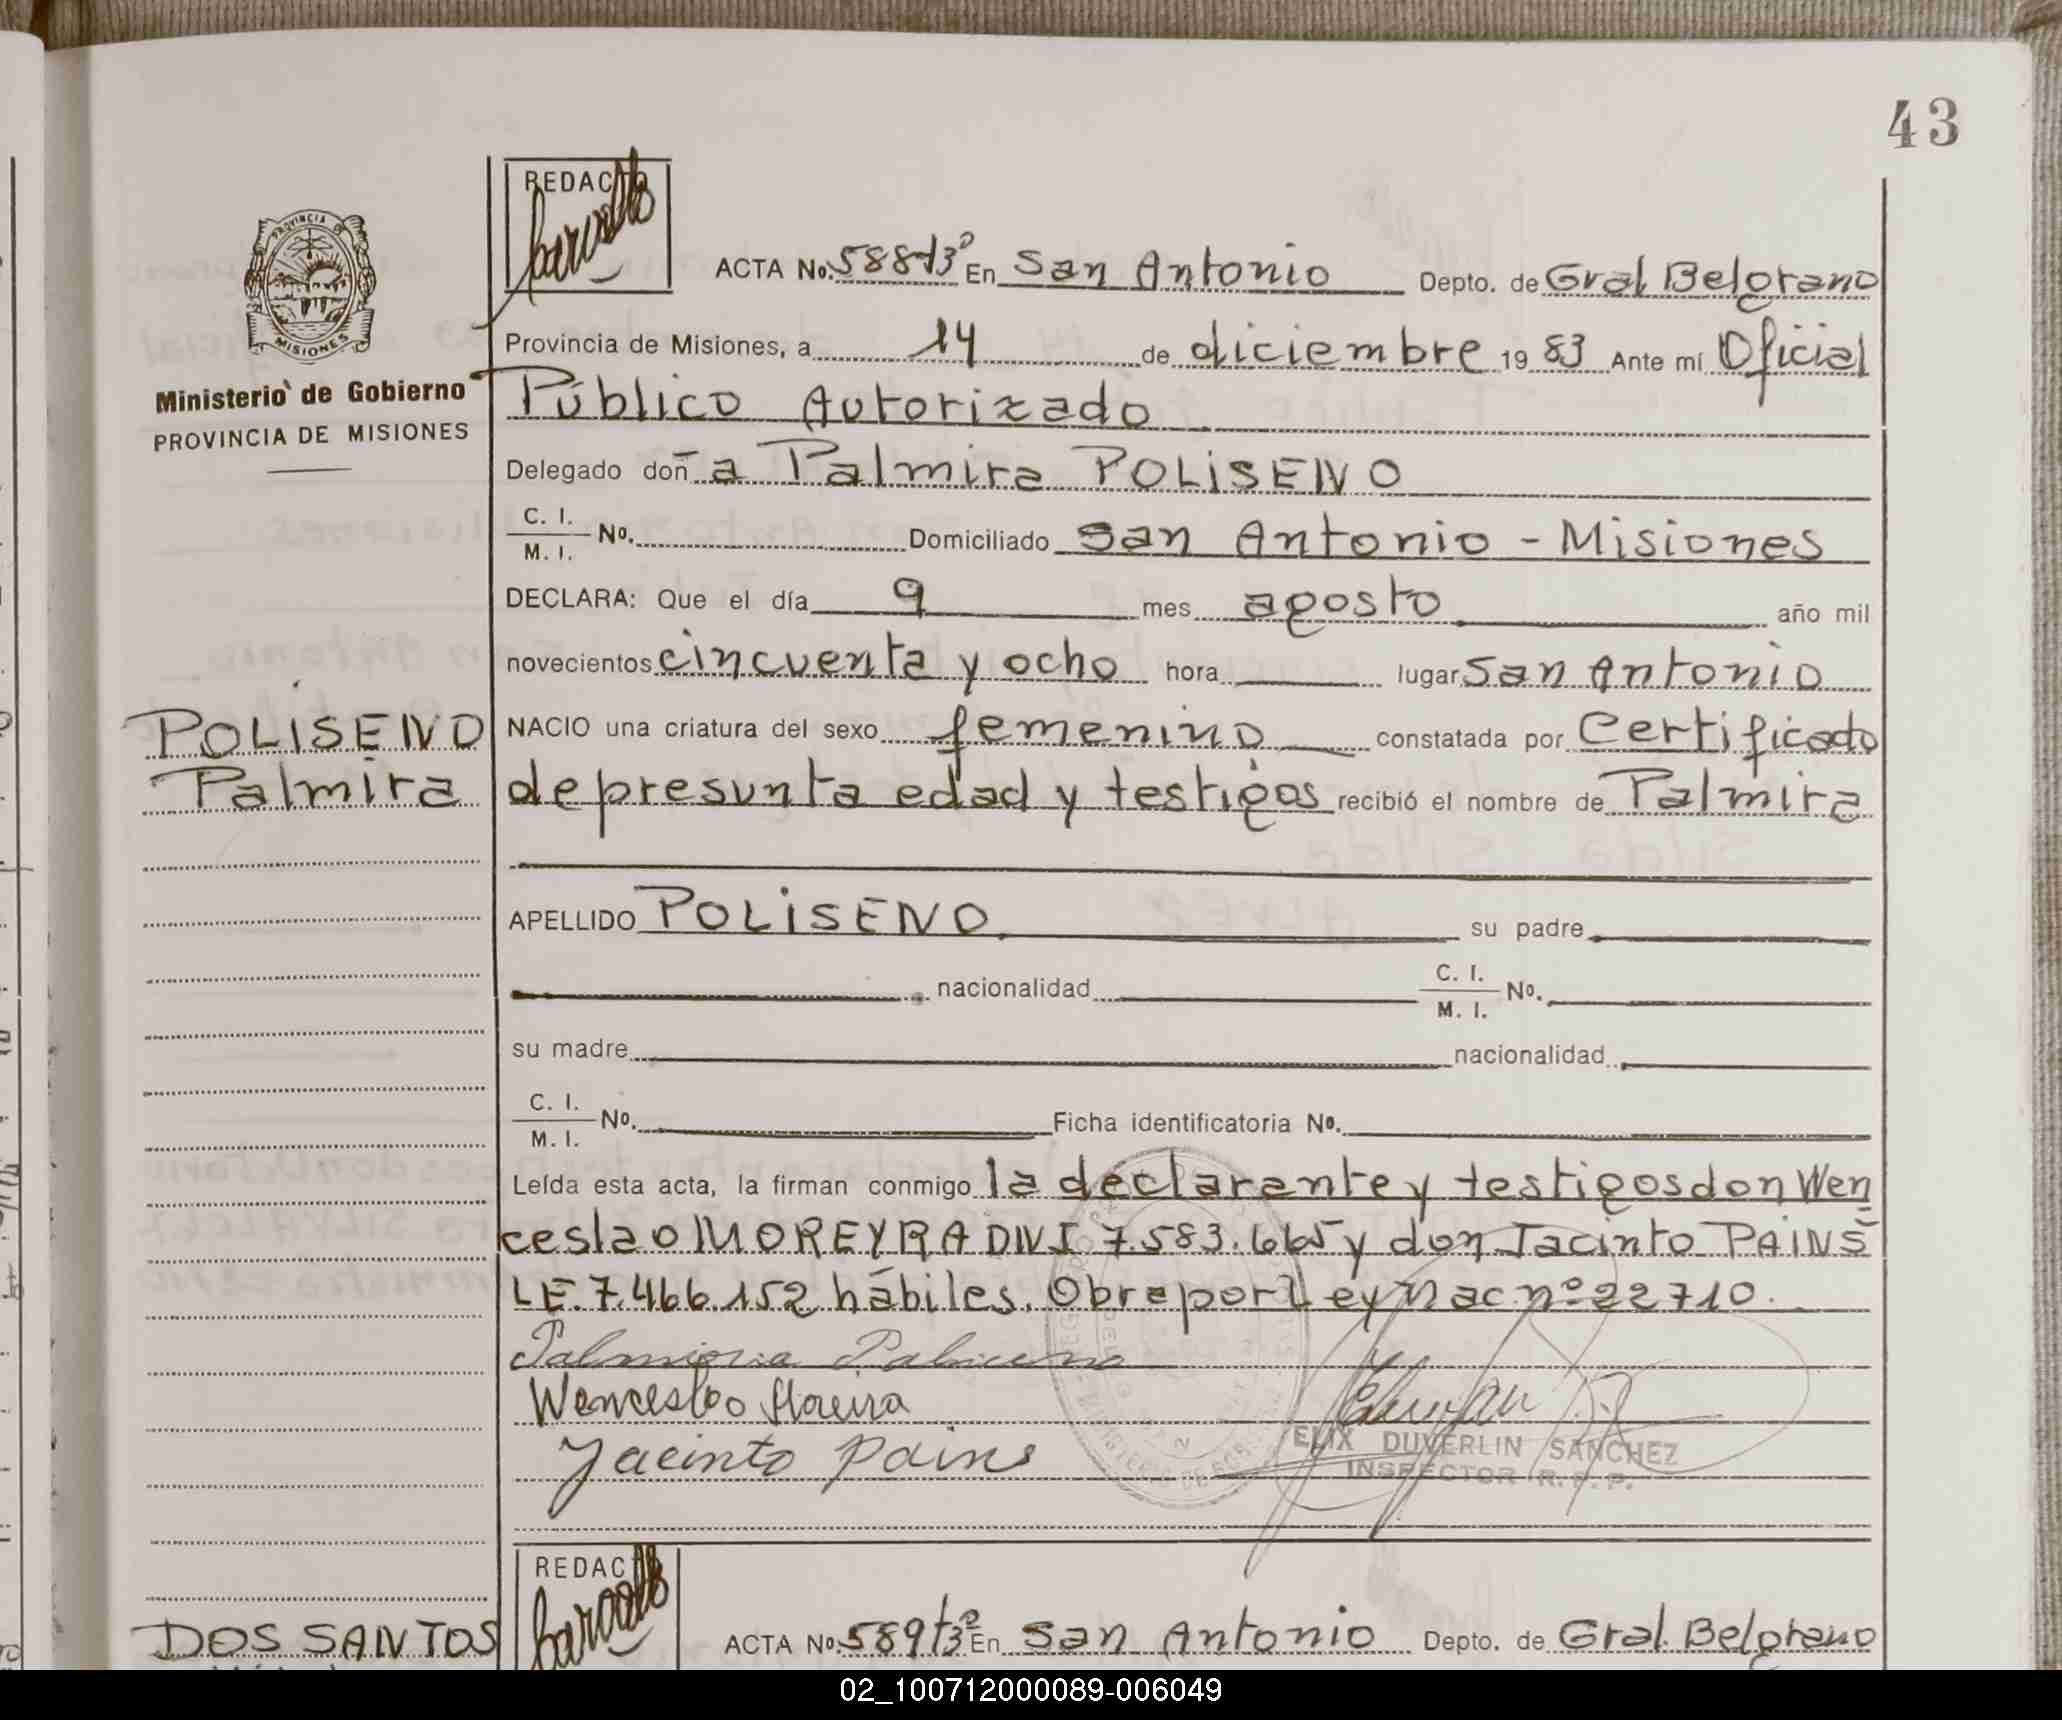 43
REDACTO
PROVINCIA
MISIONES
Ministerio de Gobierno
PROVINCIA DE MISIONES
ACTA No. 588 t3º En San Antonio Depto. de Gral Belgrano
Provincia de Misiones, a 14 de diciembre 19 83 Ante mí Oficial
Público Autorizado
Delegado doña Palmira POLISENO
C. I.
M. I. No. Domiciliado San Antonio - Misiones
DECLARA: Que el día 9 mes agosto año mil
novecientos cincuenta y ocho hora lugar San Antonio
POLISENO
Palmira
NACIO una criatura del sexo femenino constatada por Certificado
de presunta edad y testigos recibió el nombre de Palmira
APELLIDO POLISENO su padre
nacionalidad C. I.
M. I. No.
su madre nacionalidad
C. I.
M. I. No. Ficha identificatoria No.
Leída esta acta, la firman conmigo la declarante y testigos don Wen
ceslao MOREYRA DNI 7.583.665 y don Jacinto PAINS
LE. 7.466.152 hábiles. Obre por Ley Nac nº 22710.
Wenceslao Moreira
Jacinto Pains
ELIX DUVERLIN SANCHEZ
INSPECTOR R. P. P.
REDAC
DOS SANTOS
ACTA No. 589 t3º En San Antonio Depto. de Gral. Belgrano
02_100712000089-006049